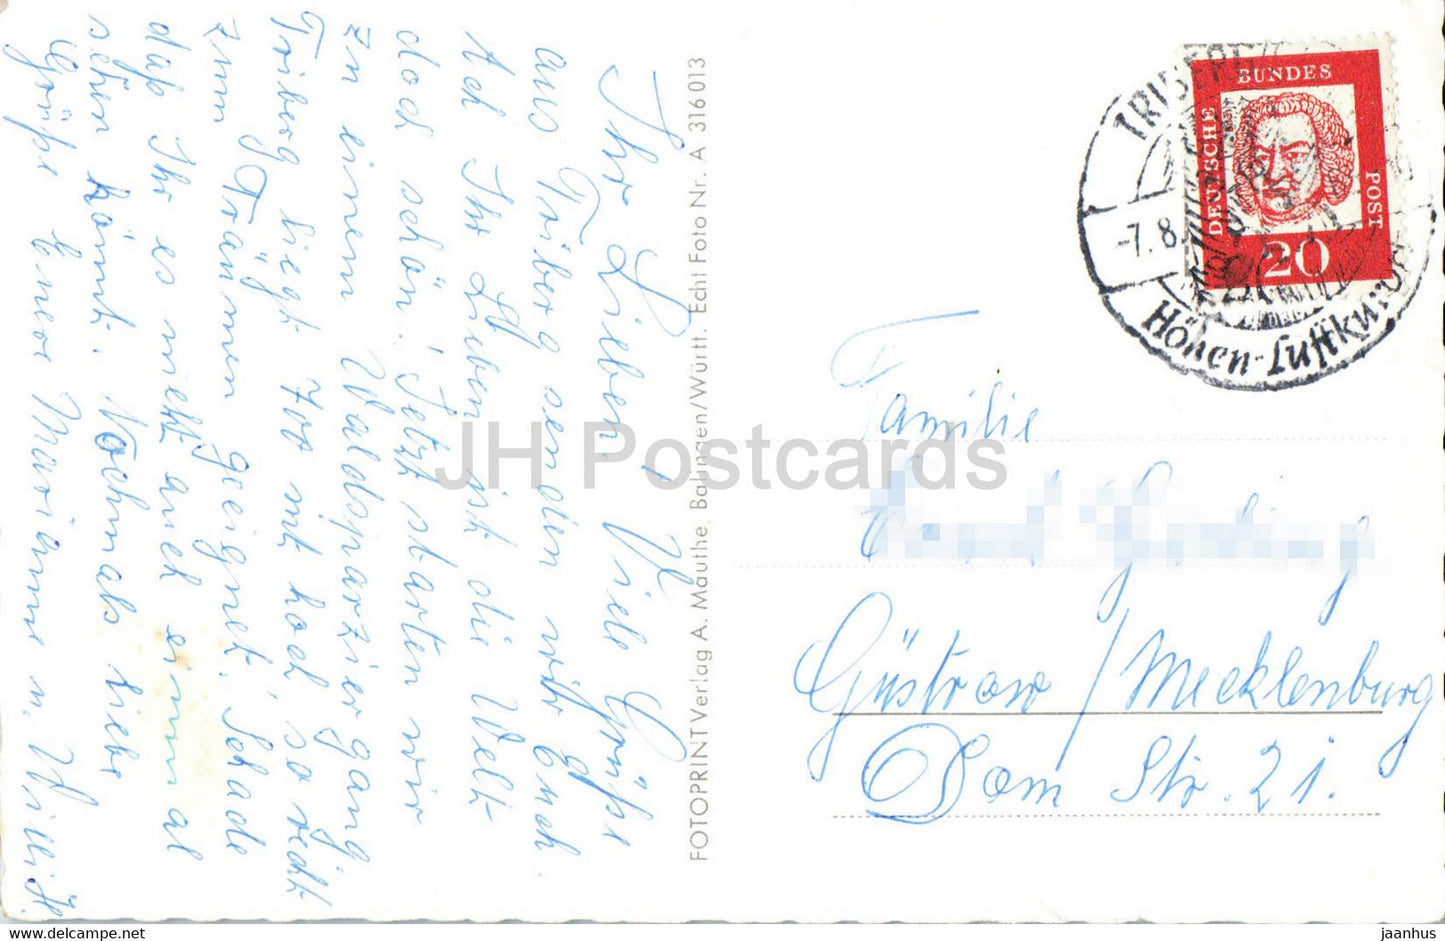 Ihr Lieben! Viele Grüße
aus Triberg senden wir Euch.
Ach Ihr Lieben ist die Welt
doch schön! Jetzt starten wir
zu einem Waldspaziergang
Triberg liegt 700 mt hoch, so recht
zum Träumen geeignet. Schade
daß Ihr es nicht auch einmal
sehen könnt. Nochmals liebe
Grüße Eure Marianne u. Willi
FOTOPRINT Verlag A. Mauthe, Balingen/Württ. Echt Foto Nr. A 316013
TRIBERG
-7.8.
Höhen-Luftkurort
DEUTSCHE
BUNDES
POST
20
Familie
Güstrow / Mecklenburg
Dom Str. 21.
JH Postcards
jaanhus on HipPostcard.com